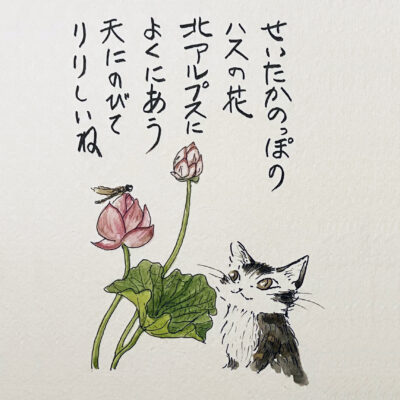 せいたかのっぽの
ハスの花
北アルプスに
よくにあう
天にのびて
りりしいね